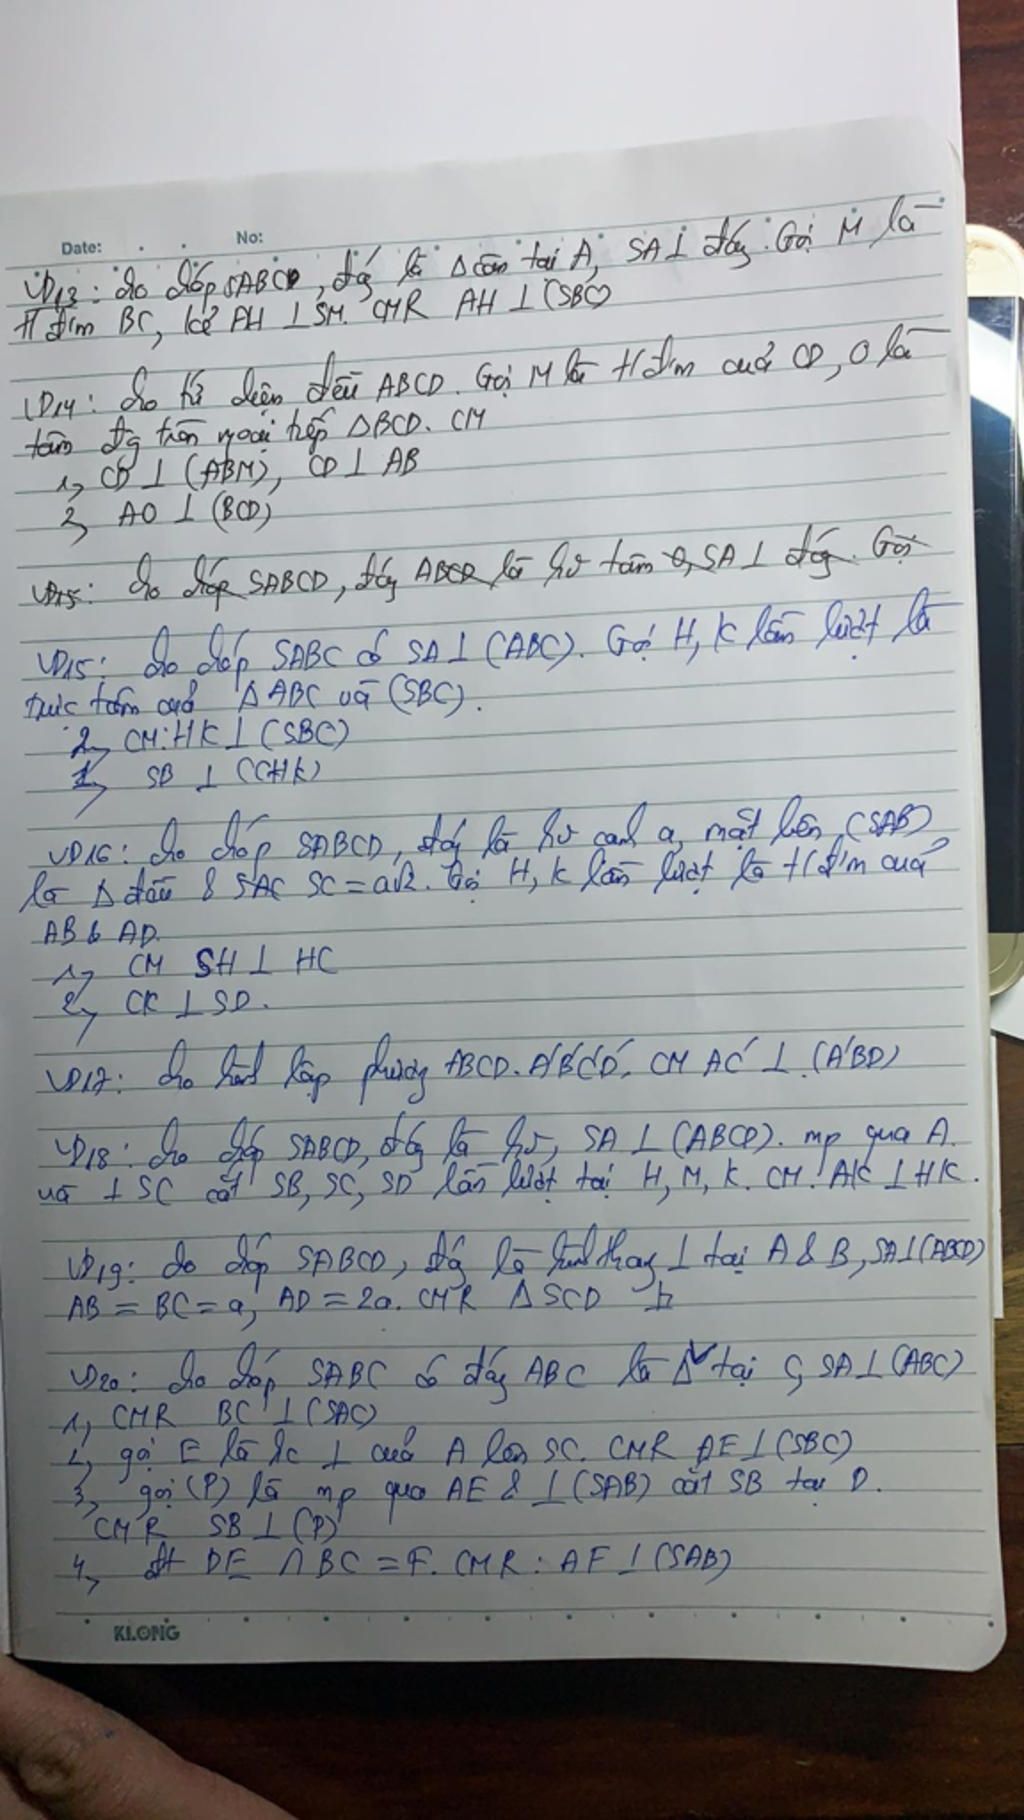 Date: No:
VD13: cho chóp SABC, đáy là Δ cân tại A, SA ⊥ đáy. Gọi M là
tđ'm BC, kẻ AH ⊥ SM. CMR AH ⊥ (SBC)
VD14: cho tứ diện đều ABCD. Gọi M là tđ'm cuả CD, O là
tâm đg tròn ngoại tiếp ΔBCD. CM
1, CD ⊥ (ABM), CD ⊥ AB
2, AO ⊥ (BCD)
VD15: cho chóp SABCD, đáy ABCD là hv tâm O, SA ⊥ đáy. Gọi
VD15: cho chóp SABC có SA ⊥ (ABC). Gọi H, K lần lượt là
trực tâm cuả ΔABC và (SBC).
2, CM: HK ⊥ (SBC)
1, SB ⊥ (CHK)
VD16: cho chóp SABCD, đáy là hv cạnh a, mặt bên (SAB)
là Δ đều & SAC SC = a√2. Gọi H, K lần lượt là tđ'm cuả
AB & AD.
1, CM SH ⊥ HC
2, CK ⊥ SD.
VD17: cho hình lập phương ABCD.A'B'C'D'. CM AC' ⊥ (A'BD)
VD18: cho chóp SABCD, đáy là hv, SA ⊥ (ABCD). mp qua A
và ⊥ SC cắt SB, SC, SD lần lượt tại H, M, K. CM: AK ⊥ HK.
VD19: cho chóp SABCD, đáy là hình thang ⊥ tại A & B, SA⊥(ABCD)
AB = BC = a, AD = 2a. CMR ΔSCD
VD20: cho chóp SABC có đáy ABC là Δ tại C, SA⊥(ABC)
1, CMR BC ⊥ (SAC)
2, gọi E là hc ⊥ cuả A lên SC. CMR AE⊥(SBC)
3, gọi (P) là mp qua AE & ⊥(SAB) cắt SB tại D.
CMR SB⊥(P)
4, đt DE ∩ BC = F. CMR: AF⊥(SAB)
KLONG